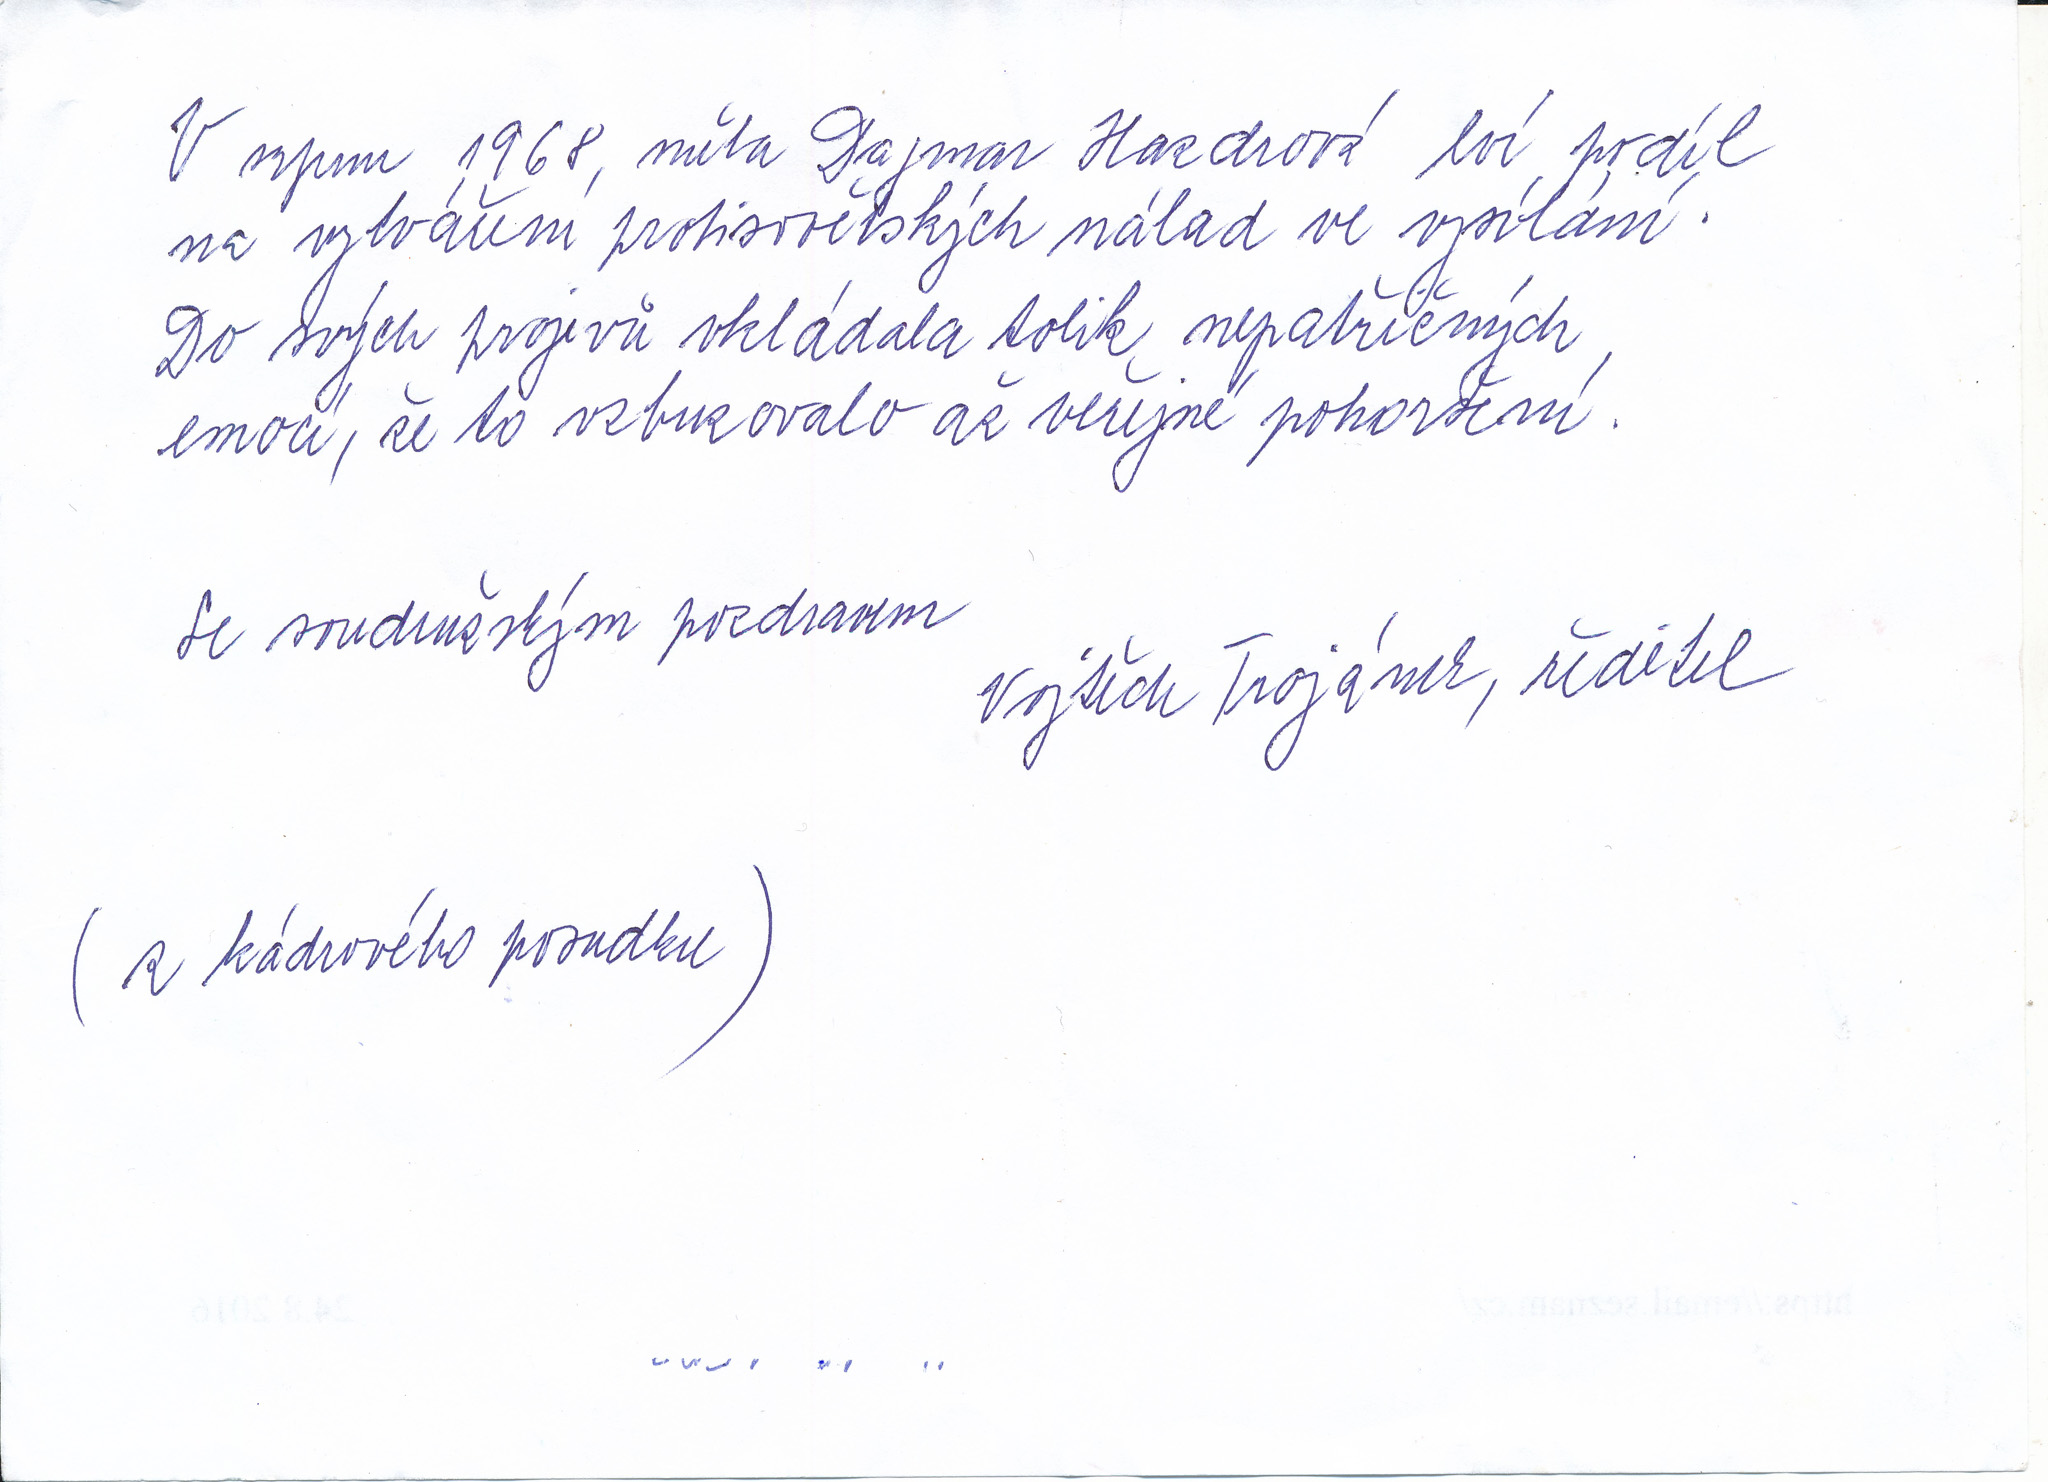 V srpnu 1968, měla Dagmar Hazdrová lví podíl
na vytváření protisovětských nálad ve vysílání.
Do svých projevů vkládala tolik nepatřičných
emocí, že to vzbuzovalo až veřejné pohoršení.
Se soudružským pozdravem
Vojtěch Trojánek, ředitel
(z kádrového posudku)
24.8.2016
https://email.seznam.cz/